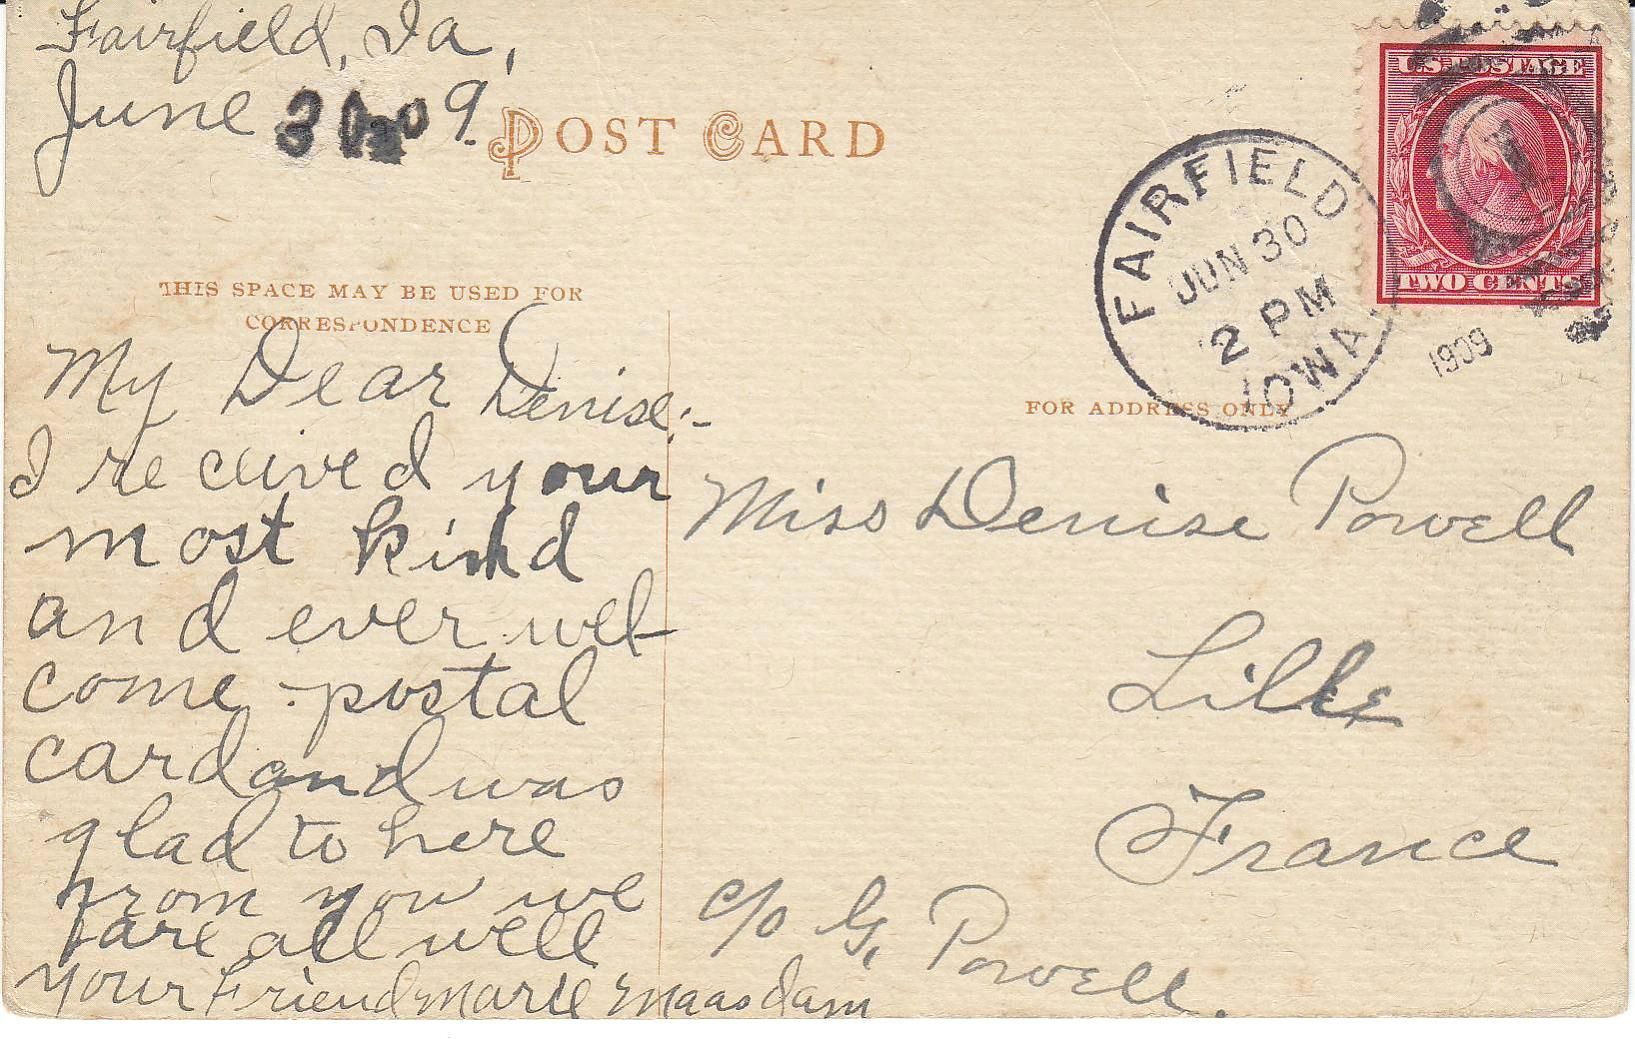 Fairfield, Ia,
June 30 09.
POST CARD
THIS SPACE MAY BE USED FOR
CORRESPONDENCE
My Dear Denise:-
I received your
most kind
and ever wel-
come postal
card and was
glad to here
from you we
are all well
your Friend Marie Maasdam
U.S. POSTAGE
TWO CENTS
1
FAIRFIELD
JUN 30
2 PM
IOWA
1909
FOR ADDRESS ONLY
Miss Denise Powell
Lille
France
c/o G. Powell.